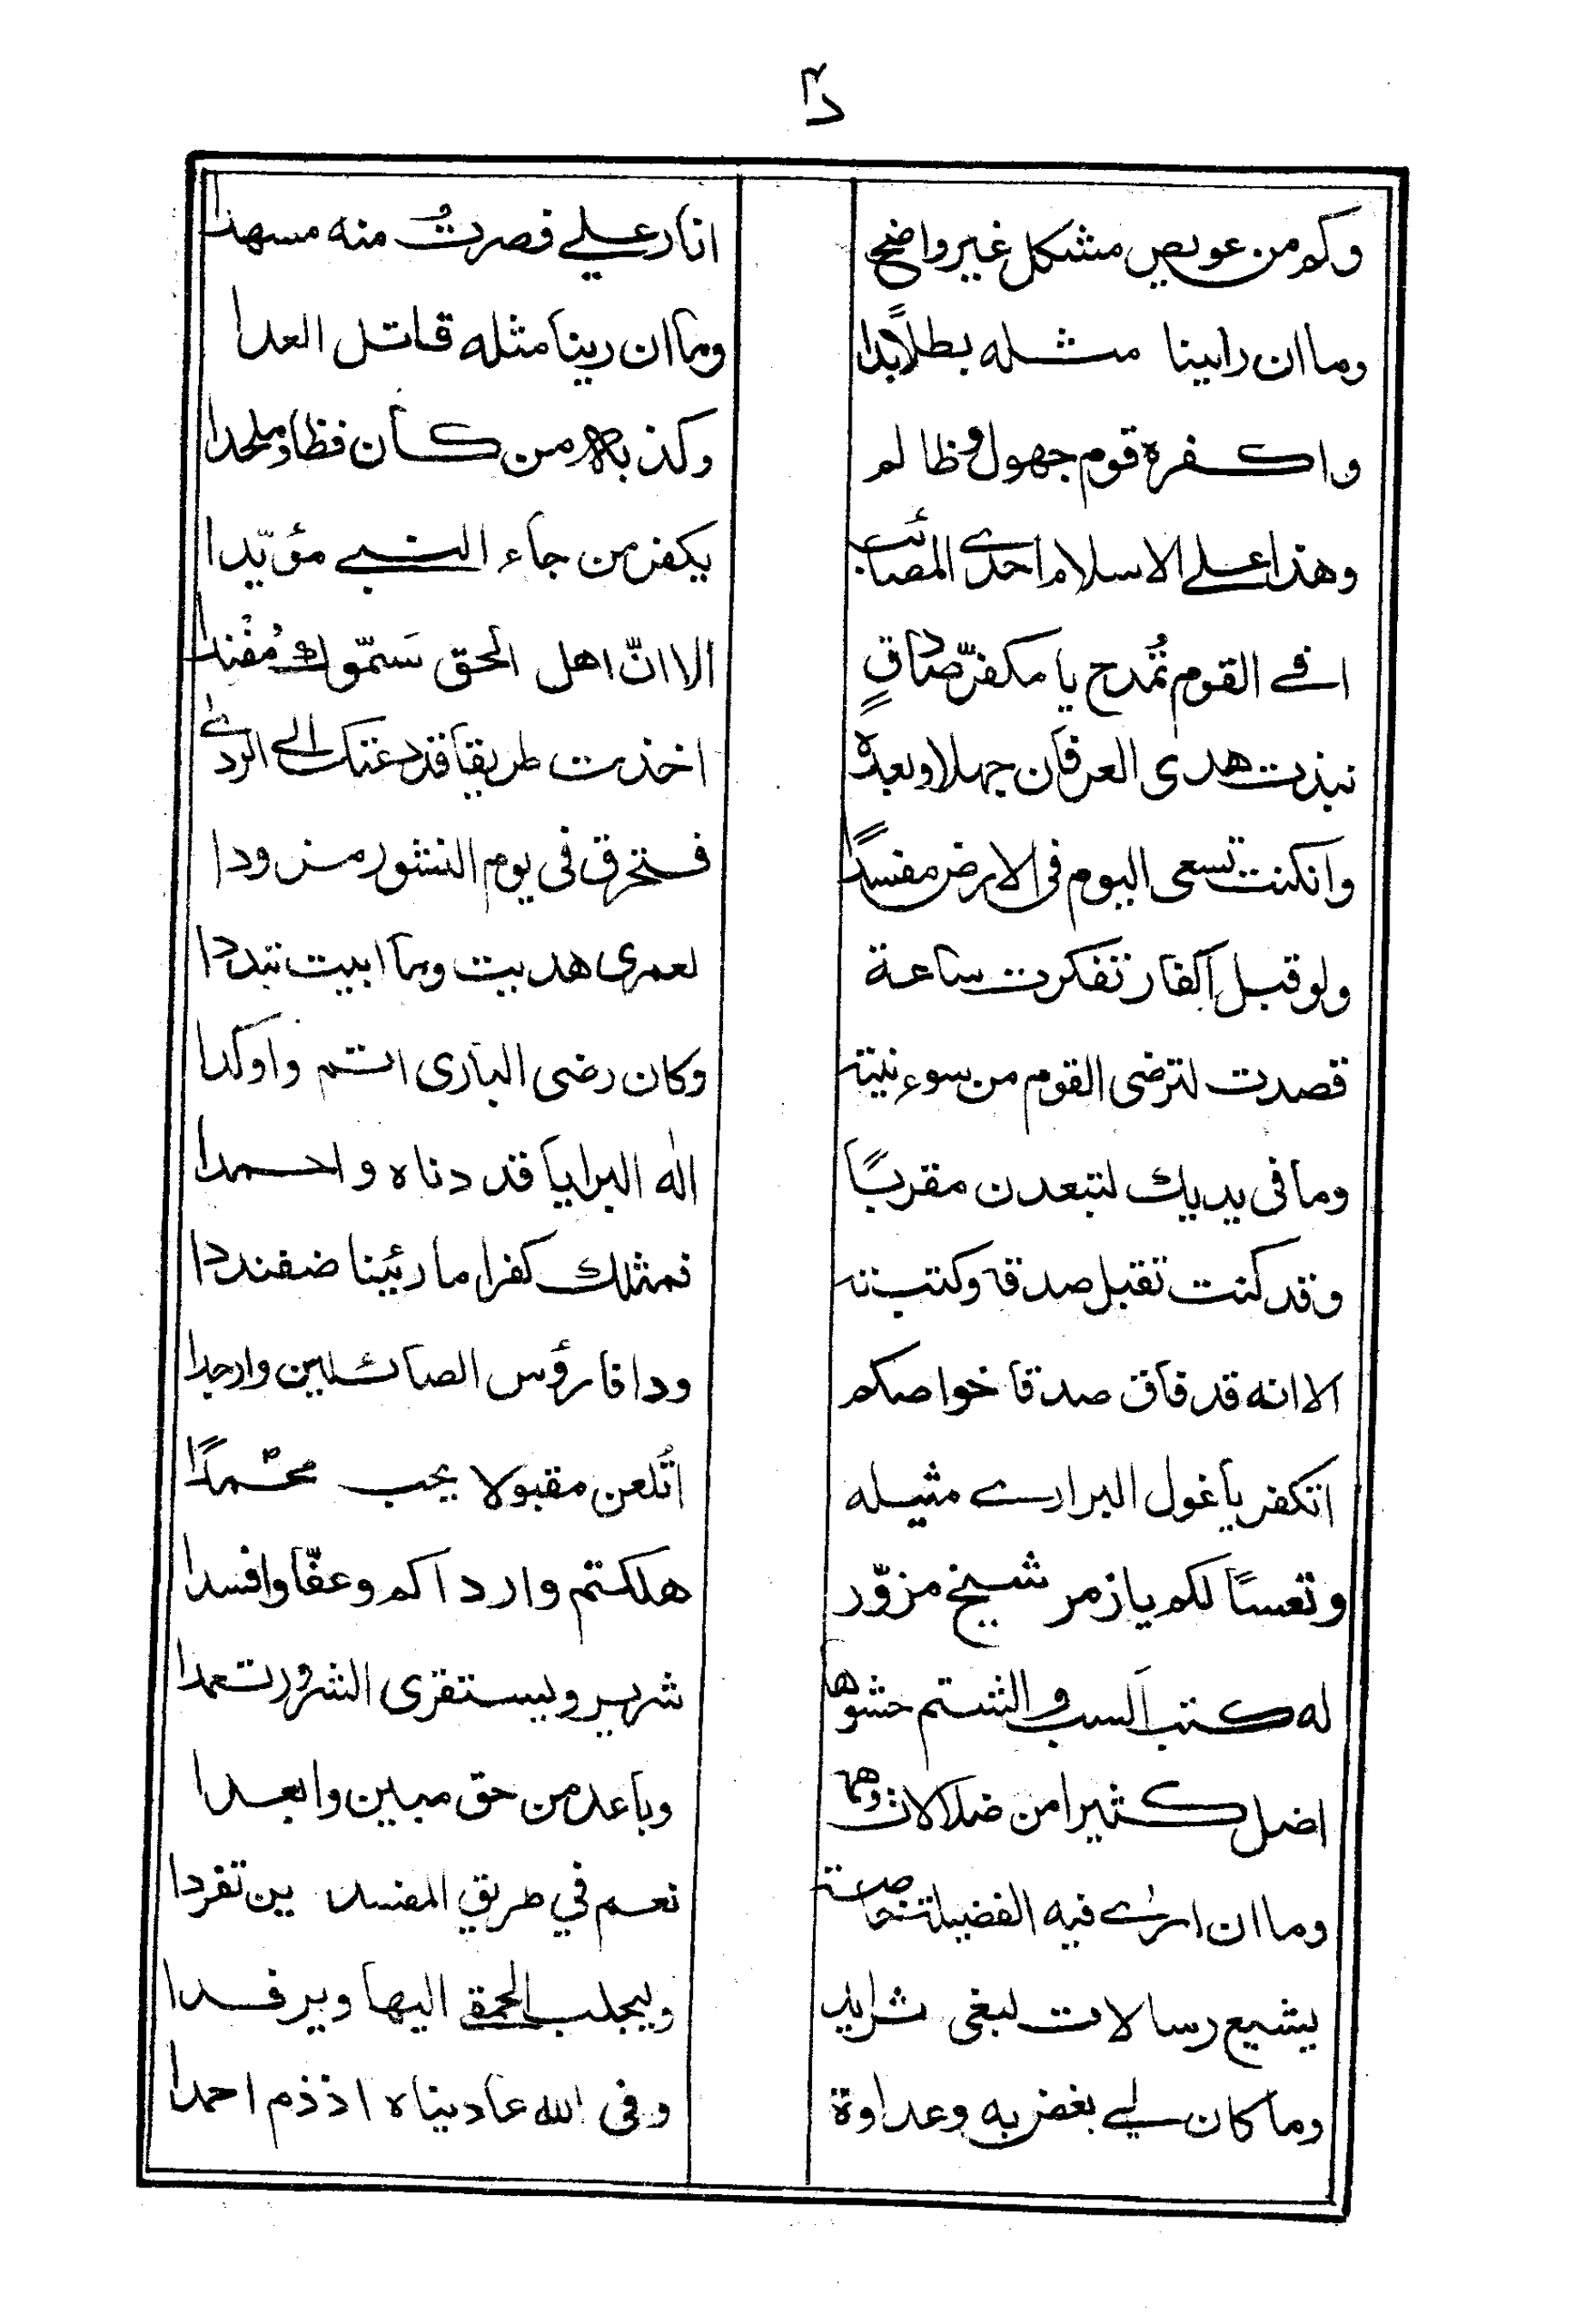 وكم من عويص مشكل غير واضح انار علي فصرتُ منه مسهدا
وما ان راينا مثله بطلاً بدا وما ان رينا مثله قاتل العدا
واكفره قوم جهول وظالم وكذبه من كان فظا وملحدا
وهذا على الاسلام احدى المصائب يكفر من جاء النبي مؤيّدا
افي القوم تُمدح يا مكفّر صادقٍ الا انّ اهل الحق سَمّوك مُفْندا
نبذت هدى العرفان جهلا وبعده اخذت طريقا قد دعتك الى الردى
وانكنت تسعى اليوم فى الارض مفسدًا فتحرق فى يوم النشور مزودا
ولو قبل اكفار تفكرت ساعة لعمرى هديت وما ابيت تبددا
قصدت لترضى القوم من سوء نية وكان رضى البارى اتم واوكدا
وما فى يديك لتبعدن مقربًا اله البرايا قد دناه واحمدا
وقد كنت تقبل صدقه وكتبته فمثلك كفرا ما رئينا ضفنددا
الا انه قد فاق صدقا خواصكم ودافا رؤس الصائلين وارجدا
اتكفر يا غول البرارى مثيله اتُلعن مقبولا يحب محمّدًا
وتعسًا لكم يا زمر شيخ مزوّر هلكتم وارداكم وعفّا وافسدا
له كتب السب والشتم حشوها شرير ويستقرى الشرور تعمدا
اضل كثيرا من ضلالات وهمه وباعد من حق مبين وابعدا
وما ان ارى فيه الفضيلة خاصة نعم في طريق المفسدين تفردا
يشيع رسالات لبغى ثرايد ويجلب الحمقى اليها ويرفدا
وما كان لي بغض به وعداوة وفى الله عاديناه اذ ذم احمدا